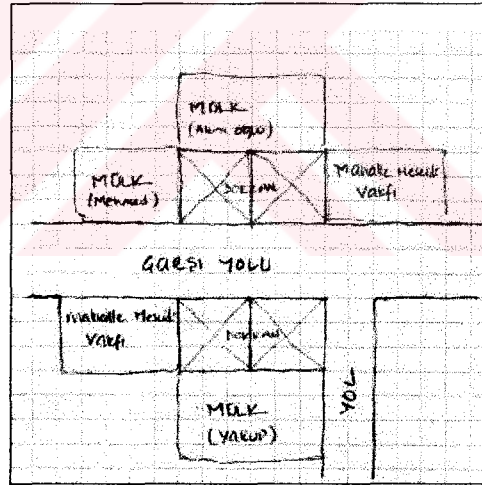 MÜLK
MÜLK
(Mehmed)
DÜKKAN
Mahalle Mescidi
Vakfı
ÇARŞI YOLU
Mahalle Mescidi
Vakfı
DÜKKAN
MÜLK
(YAKUP)
YOL